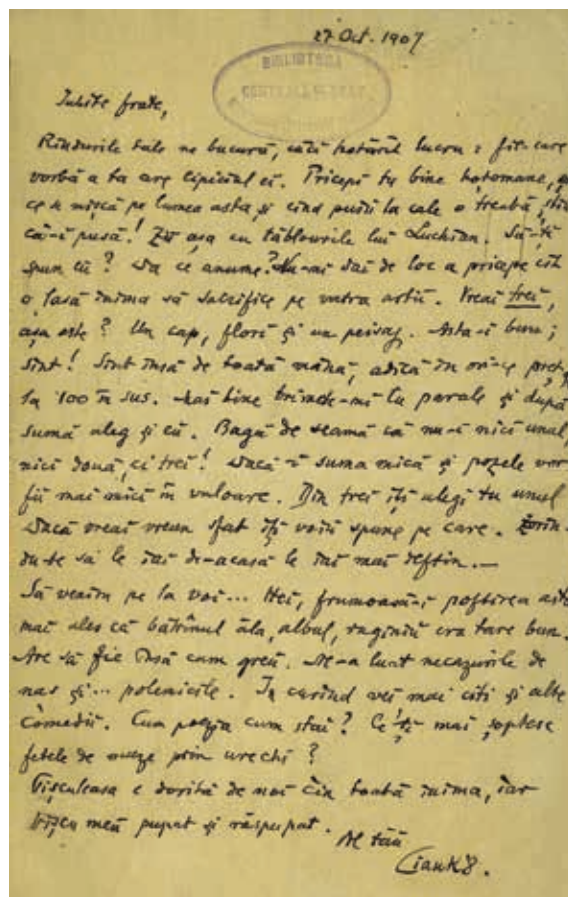 27 Oct. 1907
BIBLIOTECA
CENTRALĂ
Iubite frate,
Rîndurile tale ne bucură, căci hotărît lucru: fie-care
vorbă a ta are lipiciul ei. Pricepi tu bine hoțomane,
ce se mișcă pe lumea asta, și cînd puii la cale o treabă, știu
că-i pusă! Zii așa cu tablourile lui Luchian. Să-ți
spun eu? Da ce anume? Nu-mi dai de loc a pricepe cît
o lasă inima să sacrifice pe vatra artii. Vreai trei,
așa este? Un cap, flori și un peisaj. Asta-i bun;
sînt! Sînt însă de toată mîna, adică în ori-ce preț,
la 100 în sus. Mai bine trimete-mi tu parale și după
sumă aleg și eu. Bagă de seamă că nu-i nici unul,
nici două, ci trei! Dacă-i suma mică și pozele vor
fii mai mici în valoare. Din trei îți alegi tu unul
Dacă vreai vreun sfat îți voiu spune pe care.
du-te să le iai di-acasă le iai mai eftin.—
Să venim pe la voi... Hei, frumoasă-i poftirea asta
mai ales că bătrînul ăla, albul, ruginiu era tare bun.
Are să fie însă cam greu. Ne-a luat necazurile de
nas și... polemicile. În curînd vei mai citi și alte
comedii. Cum poezia cum stai? Ce-ți mai șoptesc
fetele de muze prin urechi?
e dorită de noi din toată inima, iar
meu pupat și răspupat.
Al tău